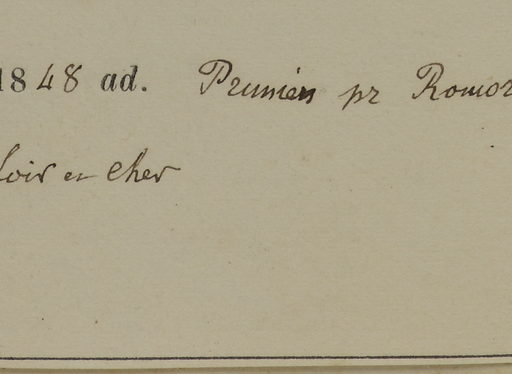 1848 ad. Prunien pr Romor
Loir et Cher